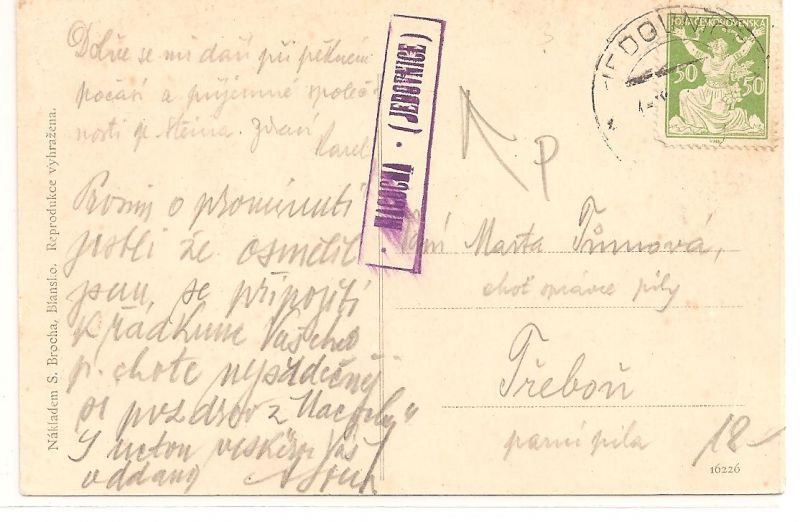 Dobře se mi daří při pěkném
počasí a příjemné společ-
nosti p. Steina. Zdraví
Karel
Prosím o prominutí
jestli že osmělil
jsem se připojiti
k řádkům Vašeho
p. chotě nejsrdečněj
pozdrav z Macochy"
S úctou veškerou Vás
oddaný
MACOCHA · (JEDOVNICE)
JEDOVNICE
POŠTA ČESKOSLOVENSKÁ
50 50
P
Paní Marta Tůmová,
choť správce pily
Třeboň
parní pila
12-
16226
Nákladem S. Brocha, Blansko. Reprodukce vyhražena.